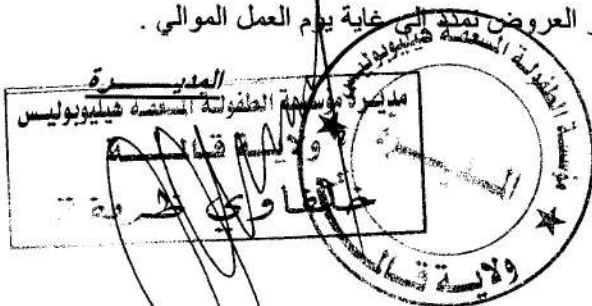 العروض تمدد إلى غاية يوم العمل الموالي .
المديـــــــرة
مديرة مؤسسة الطفولة المسعفة هيليوبوليس
ولايــة قالمــــة
مؤسسة الطفولة المسعفة هيليوبوليس
المديرة
ولايــة قالمــــة